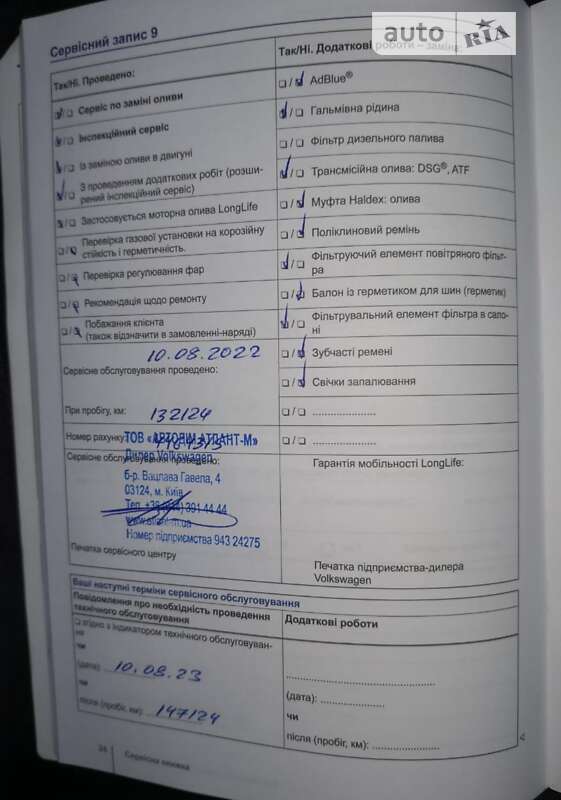 auto RIA
Сервісний запис 9
Так/Ні. Проведено:
Сервіс по заміні оливи
Інспекційний сервіс
Із заміною оливи в двигуні
З проведенням додаткових робіт (розши-
рений інспекційний сервіс)
Застосовується моторна олива LongLife
Перевірка газової установки на корозійну
стійкість і герметичність.
Перевірка регулювання фар
Рекомендація щодо ремонту
Побажання клієнта
(також відзначити в замовленні-наряді)
10.08.2022
Сервісне обслуговування проведено:
При пробігу, км: 132124
Номер рахунку:
ТОВ «АВТОДІМ АТЛАНТ-М»
Сервісне обслуговування проведено:
Дилер Volkswagen
б-р. Вацлава Гавела, 4
03124, м. Київ
391 44 44
Номер підприємства 943 24275
Печатка сервісного центру
Так/Ні. Додаткові роботи – заміна
AdBlue®
Гальмівна рідина
Фільтр дизельного палива
Трансмісійна олива: DSG®, ATF
Муфта Haldex: олива
Поліклиновий ремінь
Фільтруючий елемент повітряного фільт-
ра
Балон із герметиком для шин (герметик)
Фільтрувальний елемент фільтра в сало-
ні
Зубчасті ремені
Свічки запалювання
Гарантія мобільності LongLife:
Печатка підприємства-дилера
Volkswagen
Ваші наступні терміни сервісного обслуговування
Повідомлення про необхідність проведення
технічного обслуговування
згідно з індикатором технічного обслуговуван-
ня
чи
(дата): 10.08.23
чи
після (пробіг, км): 147124
Додаткові роботи
(дата):
чи
після (пробіг, км):
34 Сервісна книжка